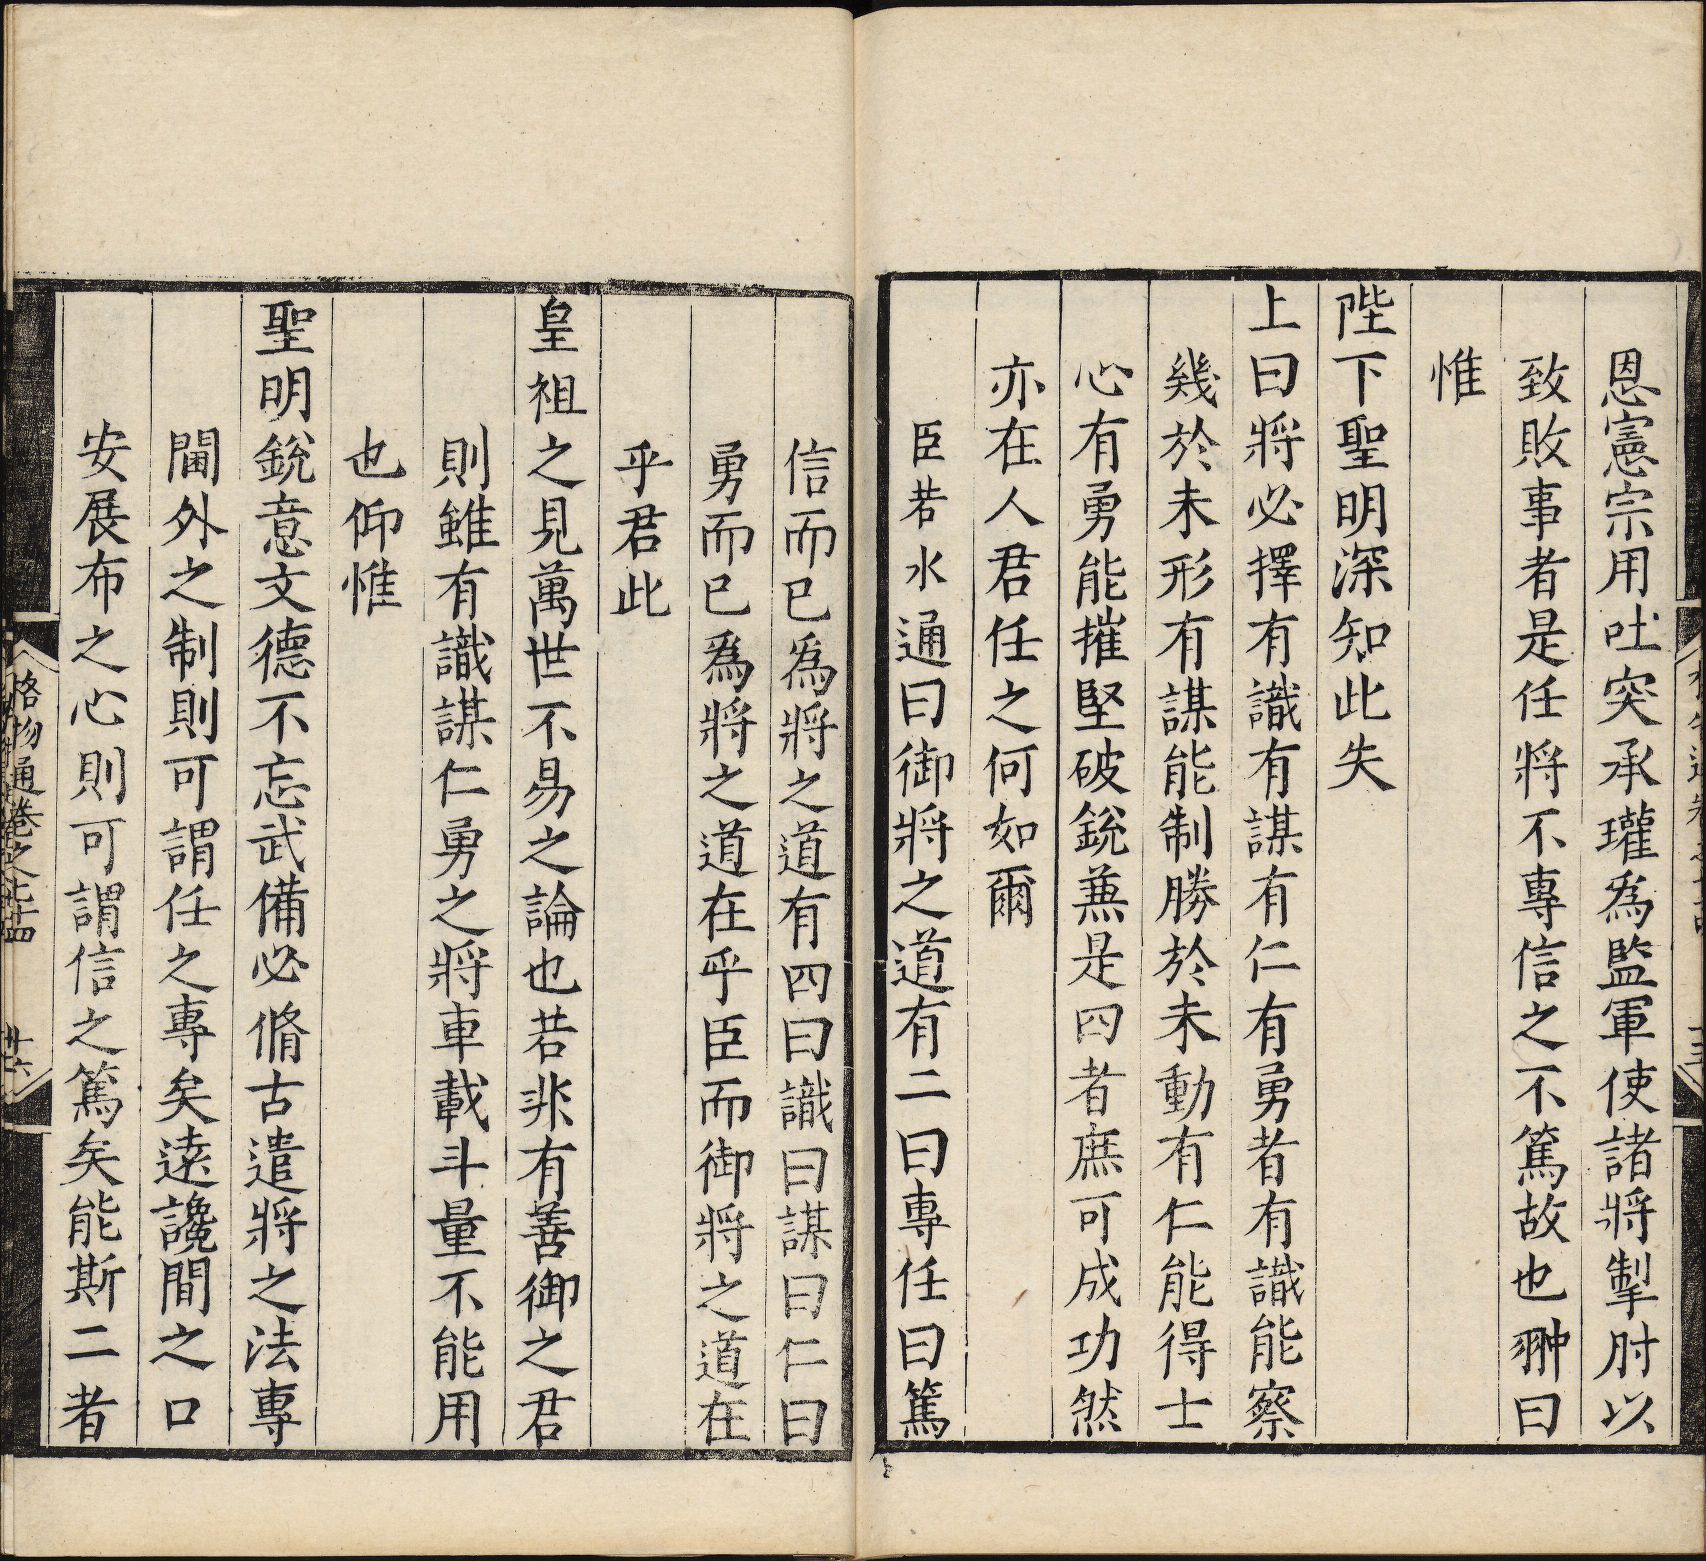 恩憲宗用吐突承瓘為監軍使諸將掣肘以
致敗事者是任將不專信之不篤故也翀曰
惟
陛下聖明深知此失
上曰將必擇有識有謀有仁有勇者有識能察
幾於未形有謀能制勝於未動有仁能得士
心有勇能摧堅破銳兼是四者庶可成功然
亦在人君任之何如爾
臣若水通曰御將之道有二曰專任曰篤
信而已為將之道有四曰識曰謀曰仁曰
勇而已為將之道在乎臣而御將之道在
乎君此
皇祖之見萬世不易之論也若非有善御之君
則雖有識謀仁勇之將車載斗量不能用
也仰惟
聖明銳意文德不忘武備必脩古遣將之法專
閫外之制則可謂任之專矣遠讒間之口
安展布之心則可謂信之篤矣能斯二者
格物通卷之七十四
十六